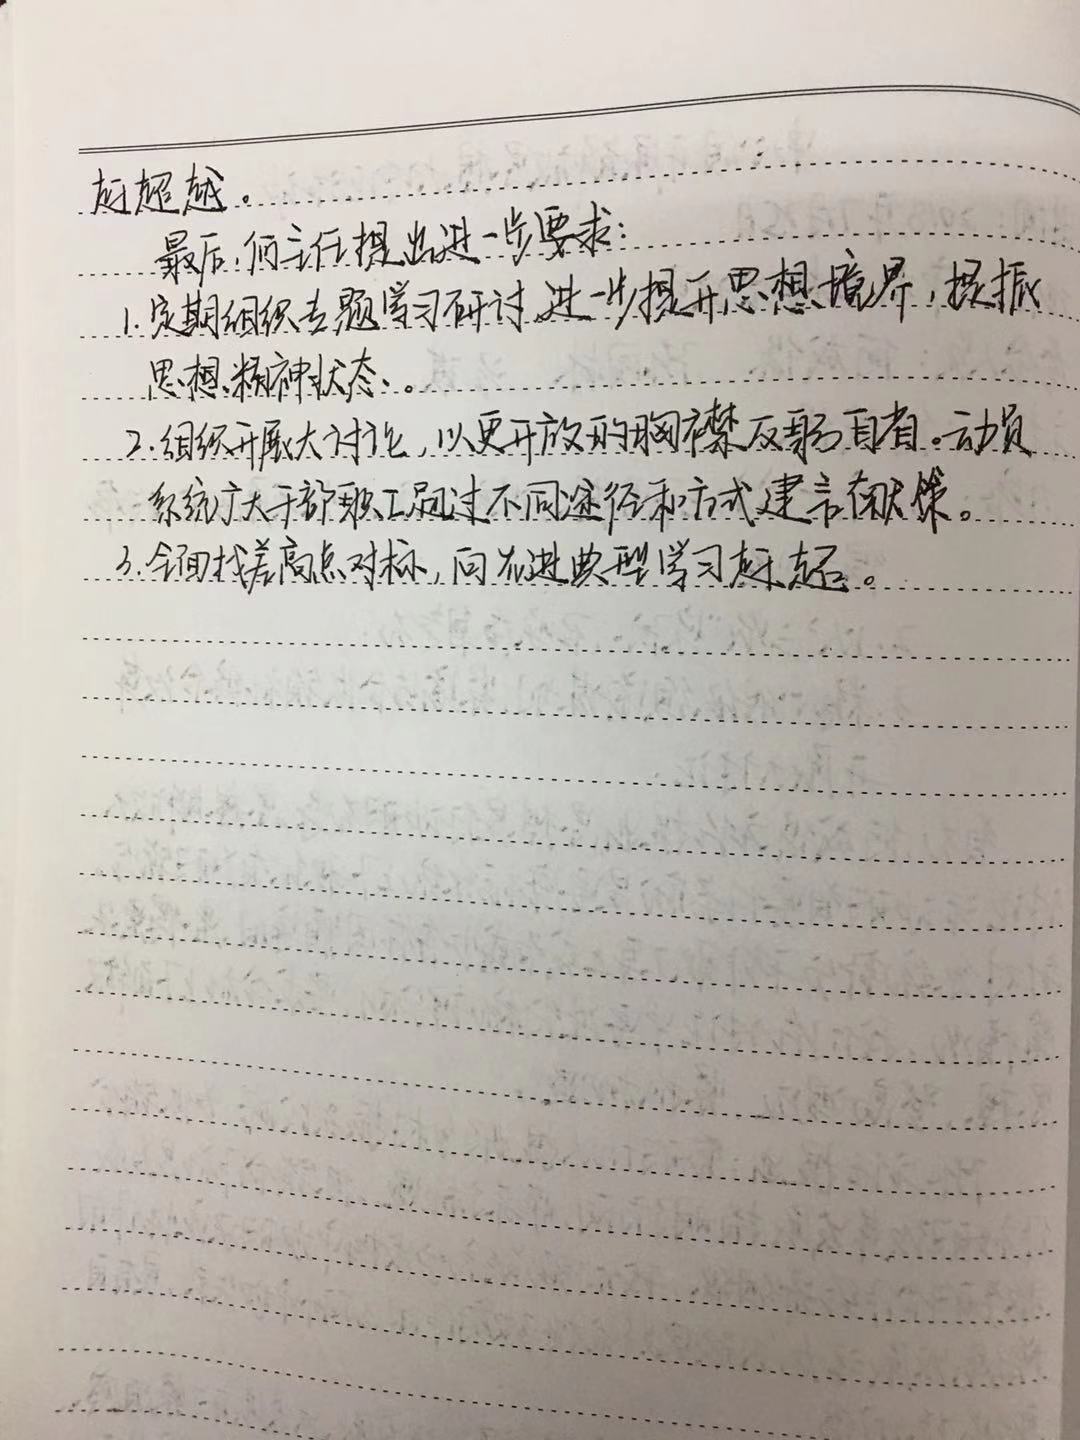 赶超越。
最后,何主任提出进一步要求:
1.定期组织专题学习研讨,进一步提升思想境界,提振
思想、精神状态、。
2.组织开展大讨论,以更开放的胸襟反躬自省。动员
系统广大干部职工通过不同途径和方式建言献策。
3.全面找差高点对标,向先进典型学习赶超。